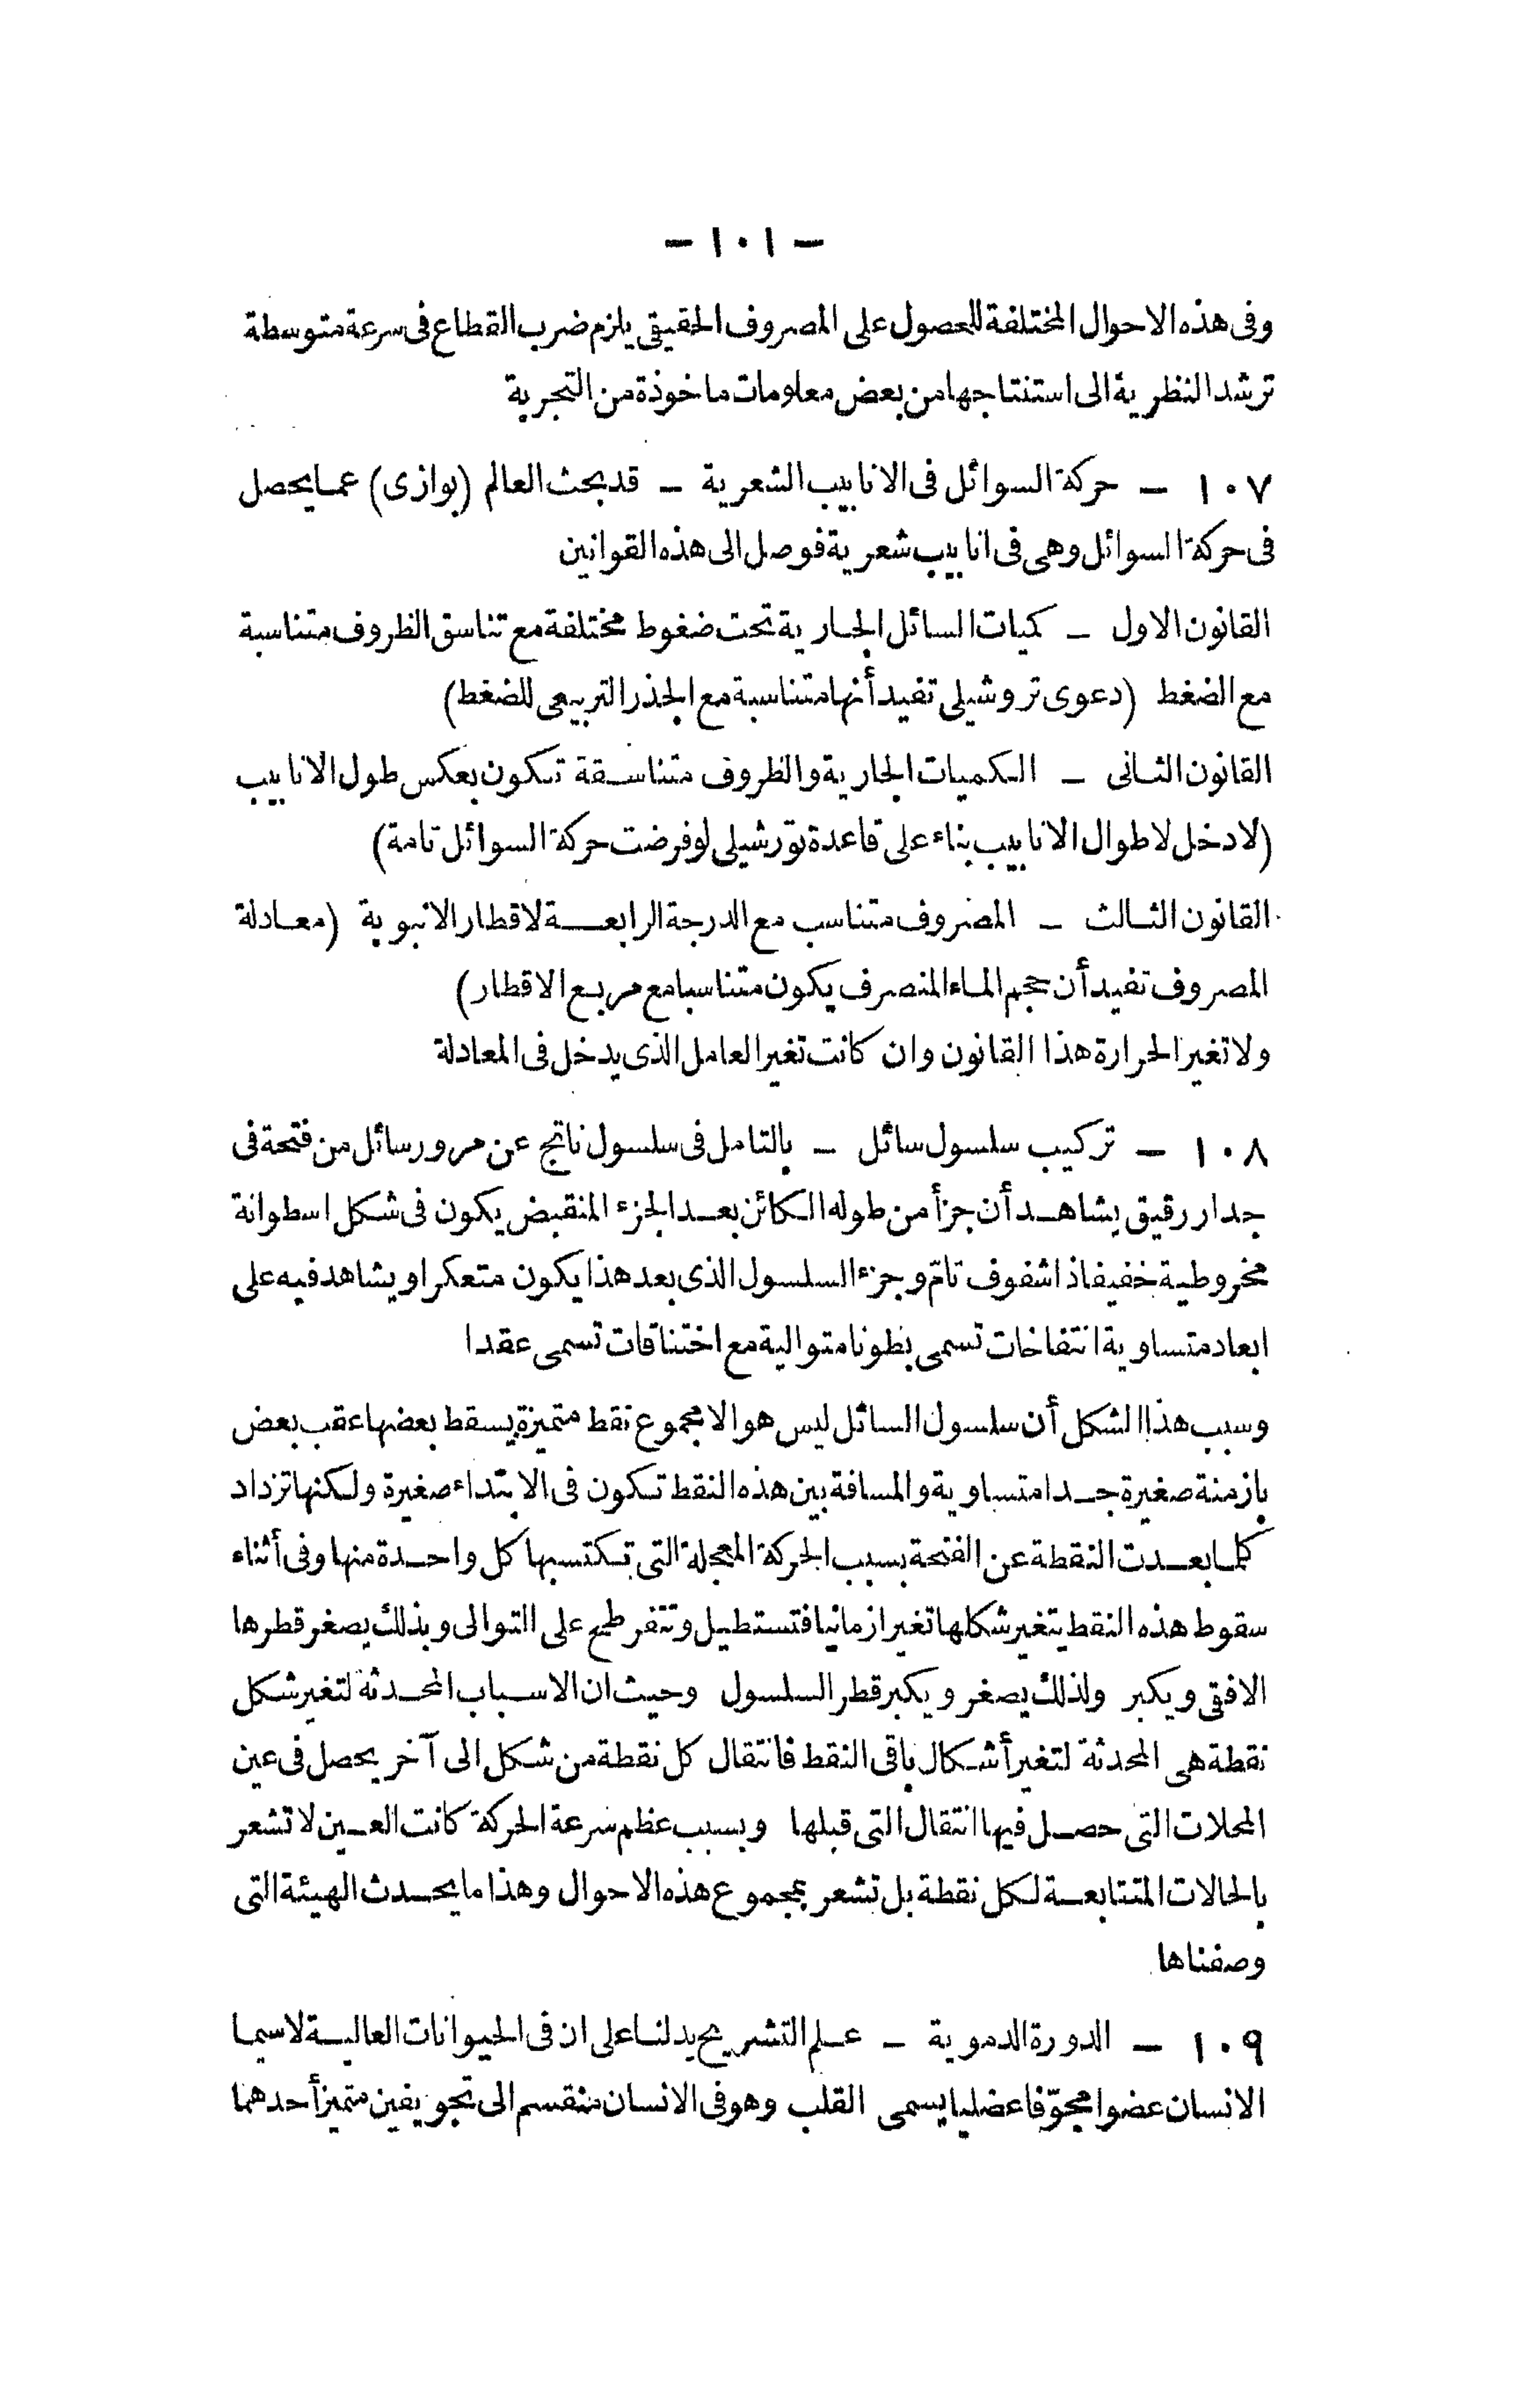 — ١٠١ —
وفى هذه الاحوال المختلفة للحصول على المصروف الحقيقى يلزم ضرب القطاع فى سرعة متوسطة
ترشد النظرية الى استنتاجها من بعض معلومات ماخوذة من التجربة
١٠٧ — حركة السوائل فى الانابيب الشعرية — قد بحث العالم (بوازى) عما يحصل
فى حركة السوائل وهى فى انابيب شعرية فوصل الى هذه القوانين
القانون الاول — كميات السائل الجارية تحت ضغوط مختلفة مع تناسق الظروف متناسبة
مع الضغط (دعوى تروشيلى تفيد أنها متناسبة مع الجذر التربيعى للضغط)
القانون الثانى — الكميات الجارية والظروف متناسقة تكون بعكس طول الانابيب
(لا دخل لاطوال الانابيب بناء على قاعدة تورشيلى لو فرضت حركة السوائل تامة)
القانون الثالث — المصروف متناسب مع الدرجة الرابعة لاقطار الانبوبة (معادلة
المصروف تفيد أن حجم الماء المنصرف يكون متناسبا مع مربع الاقطار)
ولا تغير الحرارة هذا القانون وان كانت تغير العامل الذى يدخل فى المعادلة
١٠٨ — تركيب سلسول سائل — بالتامل فى سلسول ناتج عن مرور سائل من فتحة فى
جدار رقيق يشاهد أن جزأ من طوله الكائن بعد الجزء المنقبض يكون فى شكل اسطوانة
مخروطية خفيفا ذا شفوف تامّ وجزء السلسول الذى بعد هذا يكون متعكرا ويشاهد فيه على
ابعاد متساوية انتفاخات تسمى بطونا متوالية مع اختناقات تسمى عقدا
وسبب هذا الشكل أن سلسول السائل ليس هو الا مجموع نقط متميزة يسقط بعضها عقب بعض
بازمنة صغيرة جدا متساوية والمسافة بين هذه النقط تكون فى الابتداء صغيرة ولكنها تزداد
كلما بعدت النقطة عن الفتحة بسبب الحركة المعجلة التى تكتسبها كل واحدة منها وفى أثناء
سقوط هذه النقط يتغير شكلها تغيرا زمانيا فتستطيل وتتفرطح على التوالى وبذلك يصغر قطرها
الافقى ويكبر ولذلك يصغر ويكبر قطر السلسول وحيث ان الاسباب المحدثة لتغير شكل
نقطة هى المحدثة لتغير أشكال باقى النقط فانتقال كل نقطة من شكل الى آخر يحصل فى عين
المحلات التى حصل فيها انتقال التى قبلها وبسبب عظم سرعة الحركة كانت العين لا تشعر
بالحالات المتتابعة لكل نقطة بل تشعر بمجموع هذه الاحوال وهذا ما يحدث الهيئة التى
وصفناها
١٠٩ — الدورة الدموية — علم التشريح يدلنا على ان فى الحيوانات العالية لاسيما
الانسان عضوا مجوّفا عضليا يسمى القلب وهو فى الانسان منقسم الى تجويفين متميز أحدهما